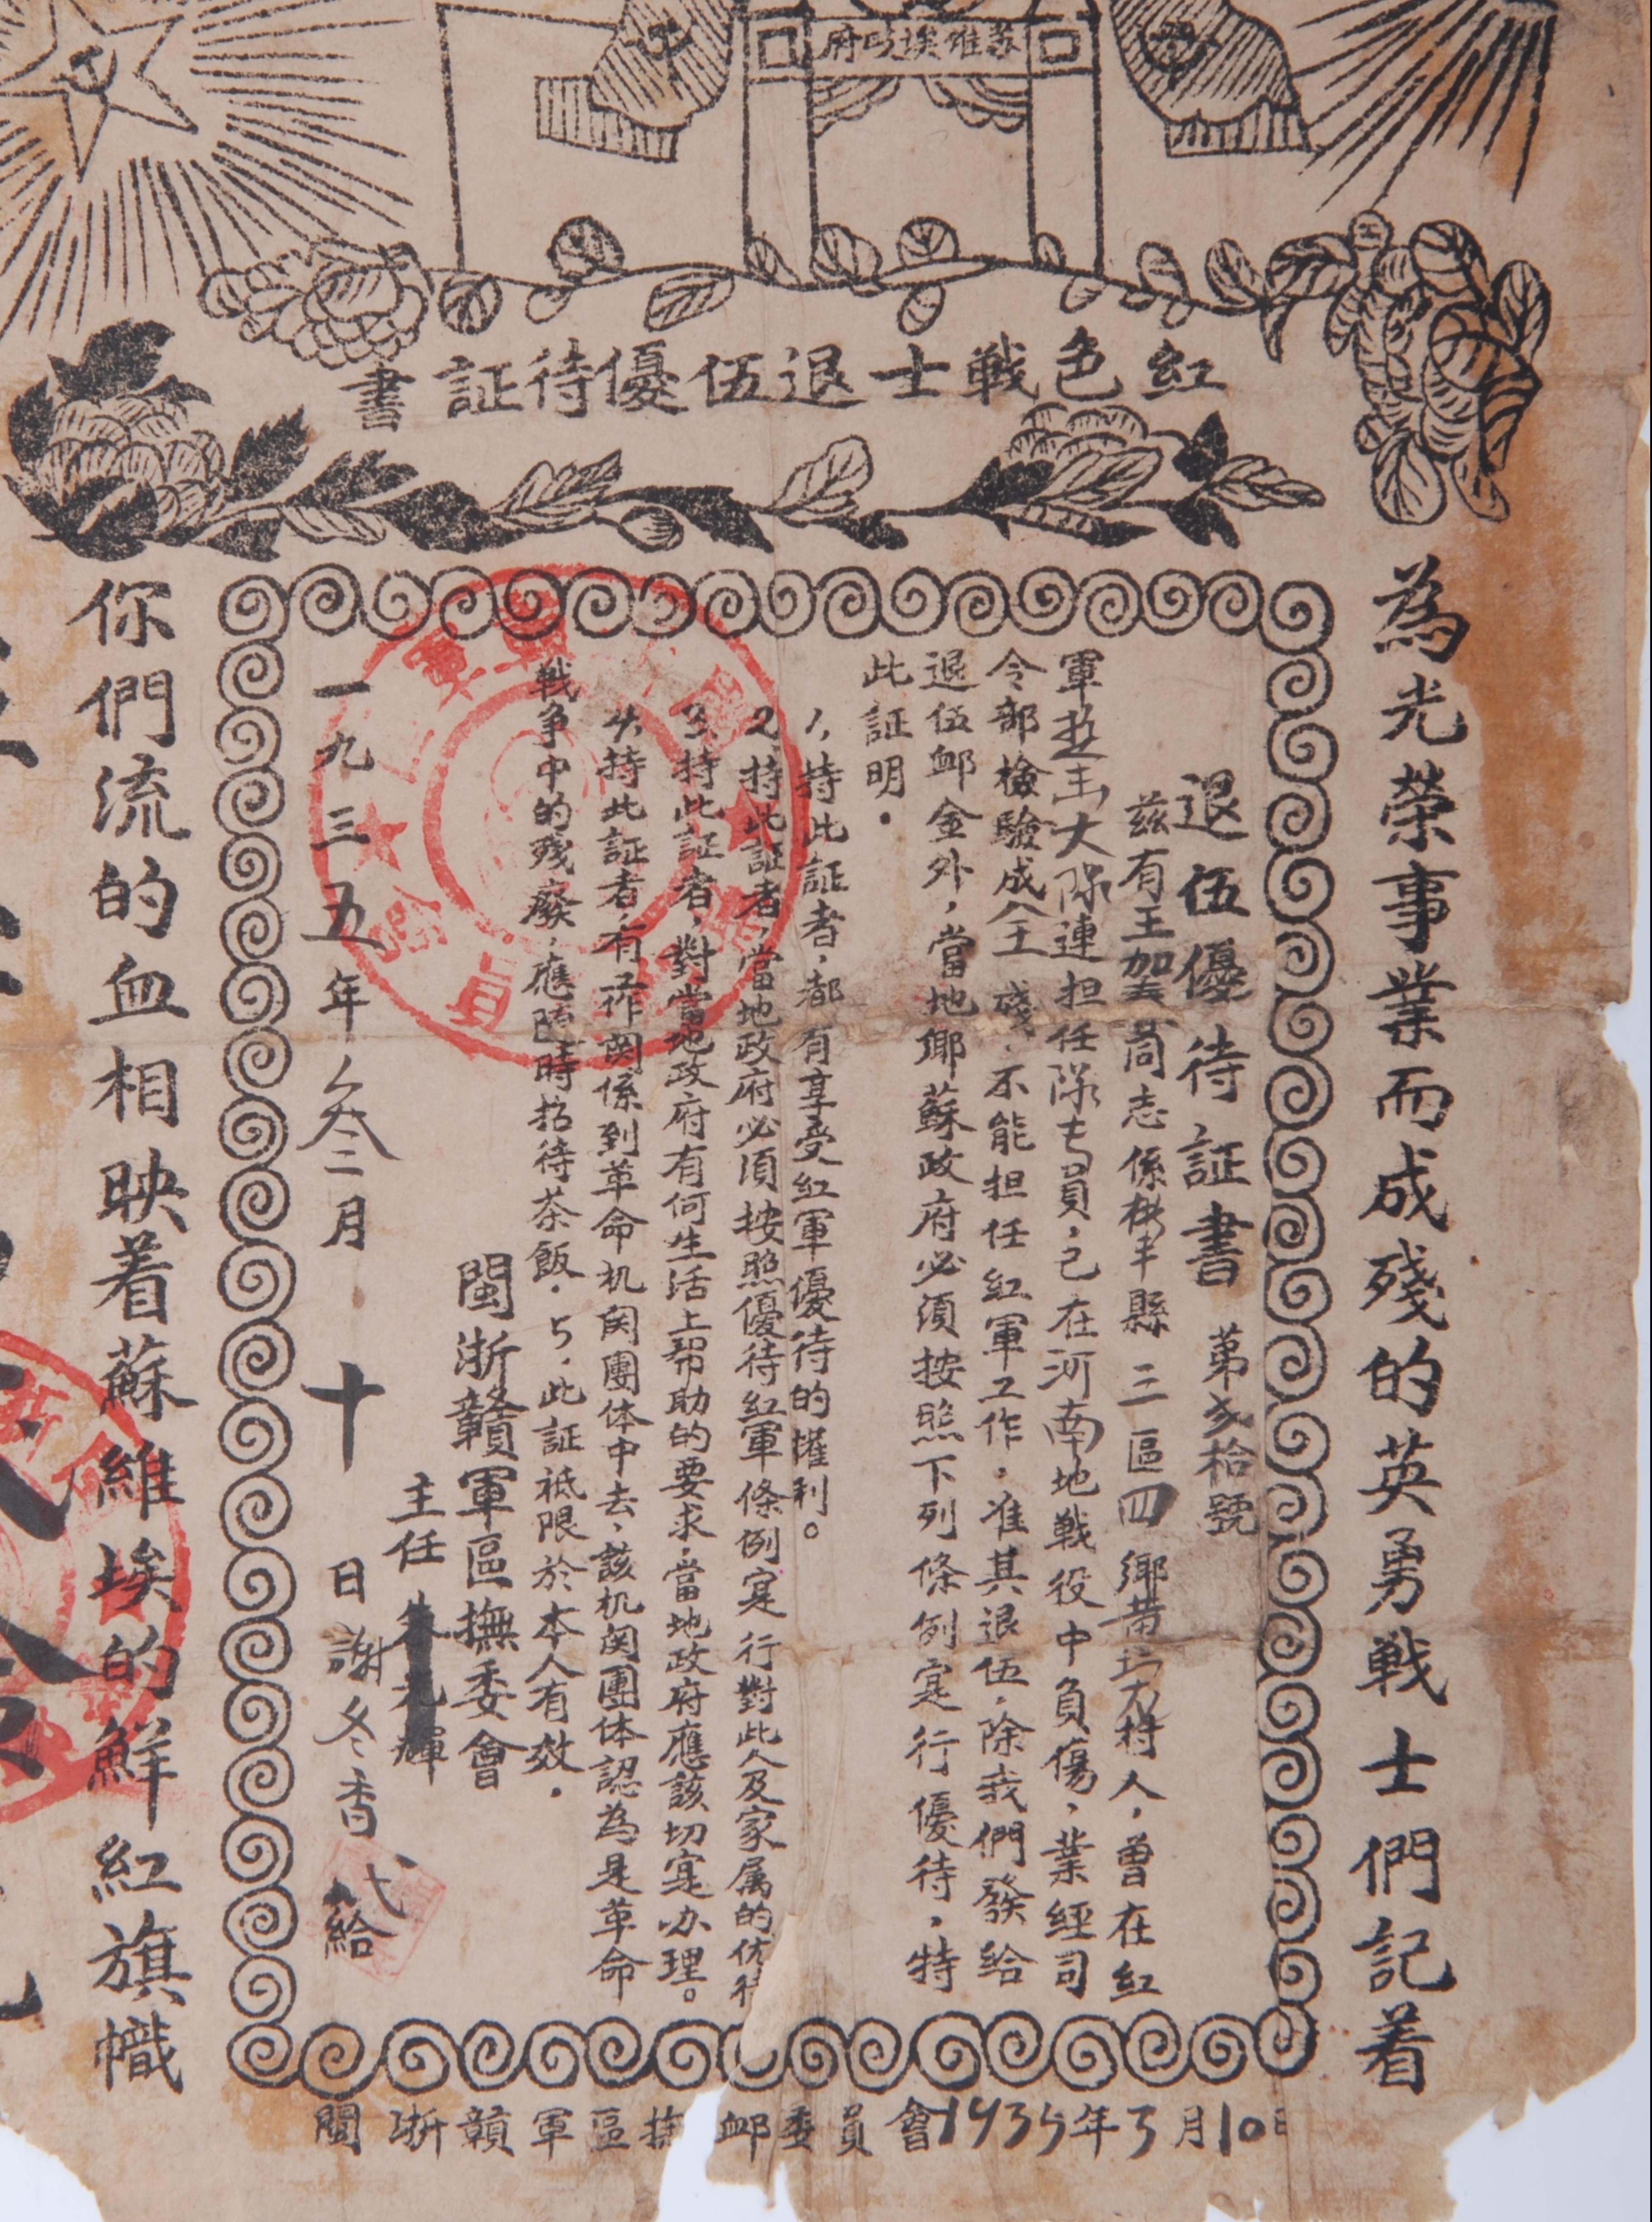 蘇維埃政府
紅色戰士退伍優待証書
為光榮事業而成殘的英勇戰士們記着
退伍優待証書 第叁拾號
茲有王加同志係縣三區四鄉黃村人，曾在紅
軍遊击大隊連担任隊員，已在河南地戰役中負傷，業經司
令部檢驗成全殘，不能担任紅軍工作，准其退伍，除我們發給
退伍卹金外，當地鄉蘇政府必須按照下列條例寔行優待，特
此証明．
1、持此証者，都有享受紅軍優待的權利。
2、持此証者，當地政府必須按照優待紅軍條例寔行對此人及家属的优待
3、持此証者，對當地政府有何生活上帮助的要求，當地政府應該切寔办理。
4、持此証者，有工作関係到革命机関團体中去，該机関團体認為是革命
戰争中的殘廢，應随時招待茶飯．5、此証衹限於本人有效．
閩浙贛軍區撫委會
主任 朱兆輝
一九三五年叁月十日謝冬香代給
你們流的血相映着蘇維埃的鮮紅旗幟
閩浙贛軍區撫卹委員會1935年3月10日